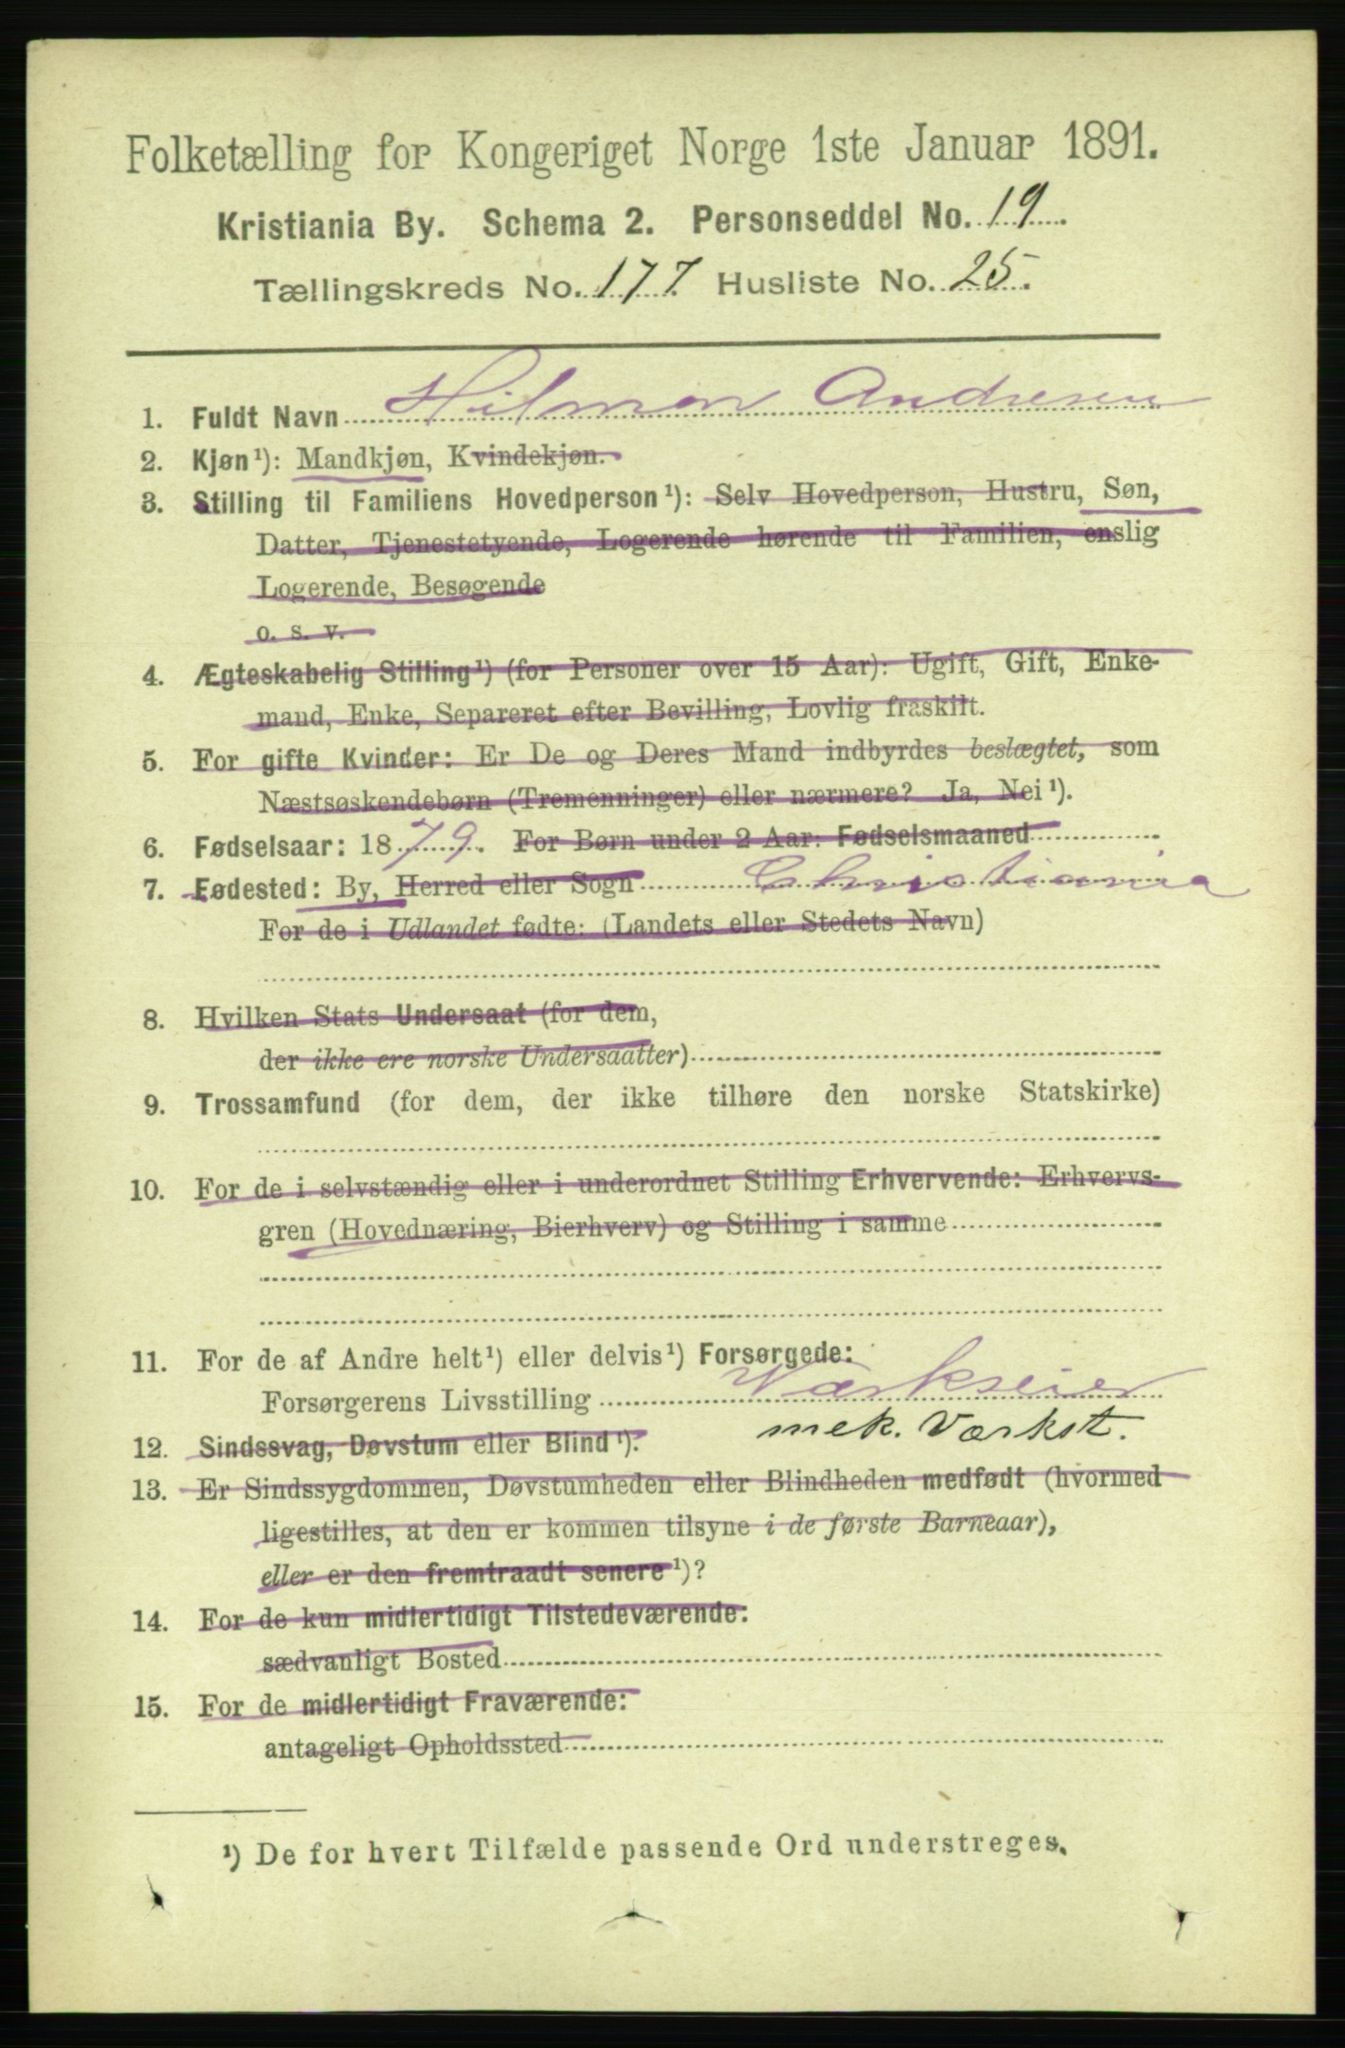 Folketælling for Kongeriget Norge 1ste Januar 1891.
Kristiania By. Schema 2. Personseddel No. 19.
Tællingskreds No. 177. Husliste No. 25.
1. Fuldt Navn Hilmar Andresen
2. Kjøn¹): Mandkjøn, Kvindekjøn.
3. Stilling til Familiens Hovedperson¹): Selv Hovedperson, Hustru, Søn,
Datter, Tjenestetyende, Logerende hørende til Familien, enslig
Logerende, Besøgende
o. s. v.
4. Ægteskabelig Stilling¹) (for Personer over 15 Aar): Ugift, Gift, Enke-
mand, Enke, Separeret efter Bevilling, Lovlig fraskilt.
5. For gifte Kvinder: Er De og Deres Mand indbyrdes beslægtet, som
Næstsøskendebørn (Tremenninger) eller nærmere? Ja, Nei¹).
6. Fødselsaar: 1879. For Børn under 2 Aar: Fødselsmaaned
7. Fødested: By, Herred eller Sogn Christiania
For de i Udlandet fødte: (Landets eller Stedets Navn)
8. Hvilken Stats Undersaat (for dem,
der ikke ere norske Undersaatter)
9. Trossamfund (for dem, der ikke tilhøre den norske Statskirke)
10. For de i selvstændig eller i underordnet Stilling Erhvervende: Erhvervs-
gren (Hovednæring, Bierhverv) og Stilling i samme
11. For de af Andre helt¹) eller delvis¹) Forsørgede:
Forsørgerens Livsstilling Værkseier
mek. Værkst.
12. Sindssvag, Døvstum eller Blind¹).
13. Er Sindssygdommen, Døvstumheden eller Blindheden medfødt (hvormed
ligestilles, at den er kommen tilsyne i de første Barneaar),
eller er den fremtraadt senere¹)?
14. For de kun midlertidigt Tilstedeværende:
sædvanligt Bosted
15. For de midlertidigt Fraværende:
antageligt Opholdssted
¹) De for hvert Tilfælde passende Ord understreges.